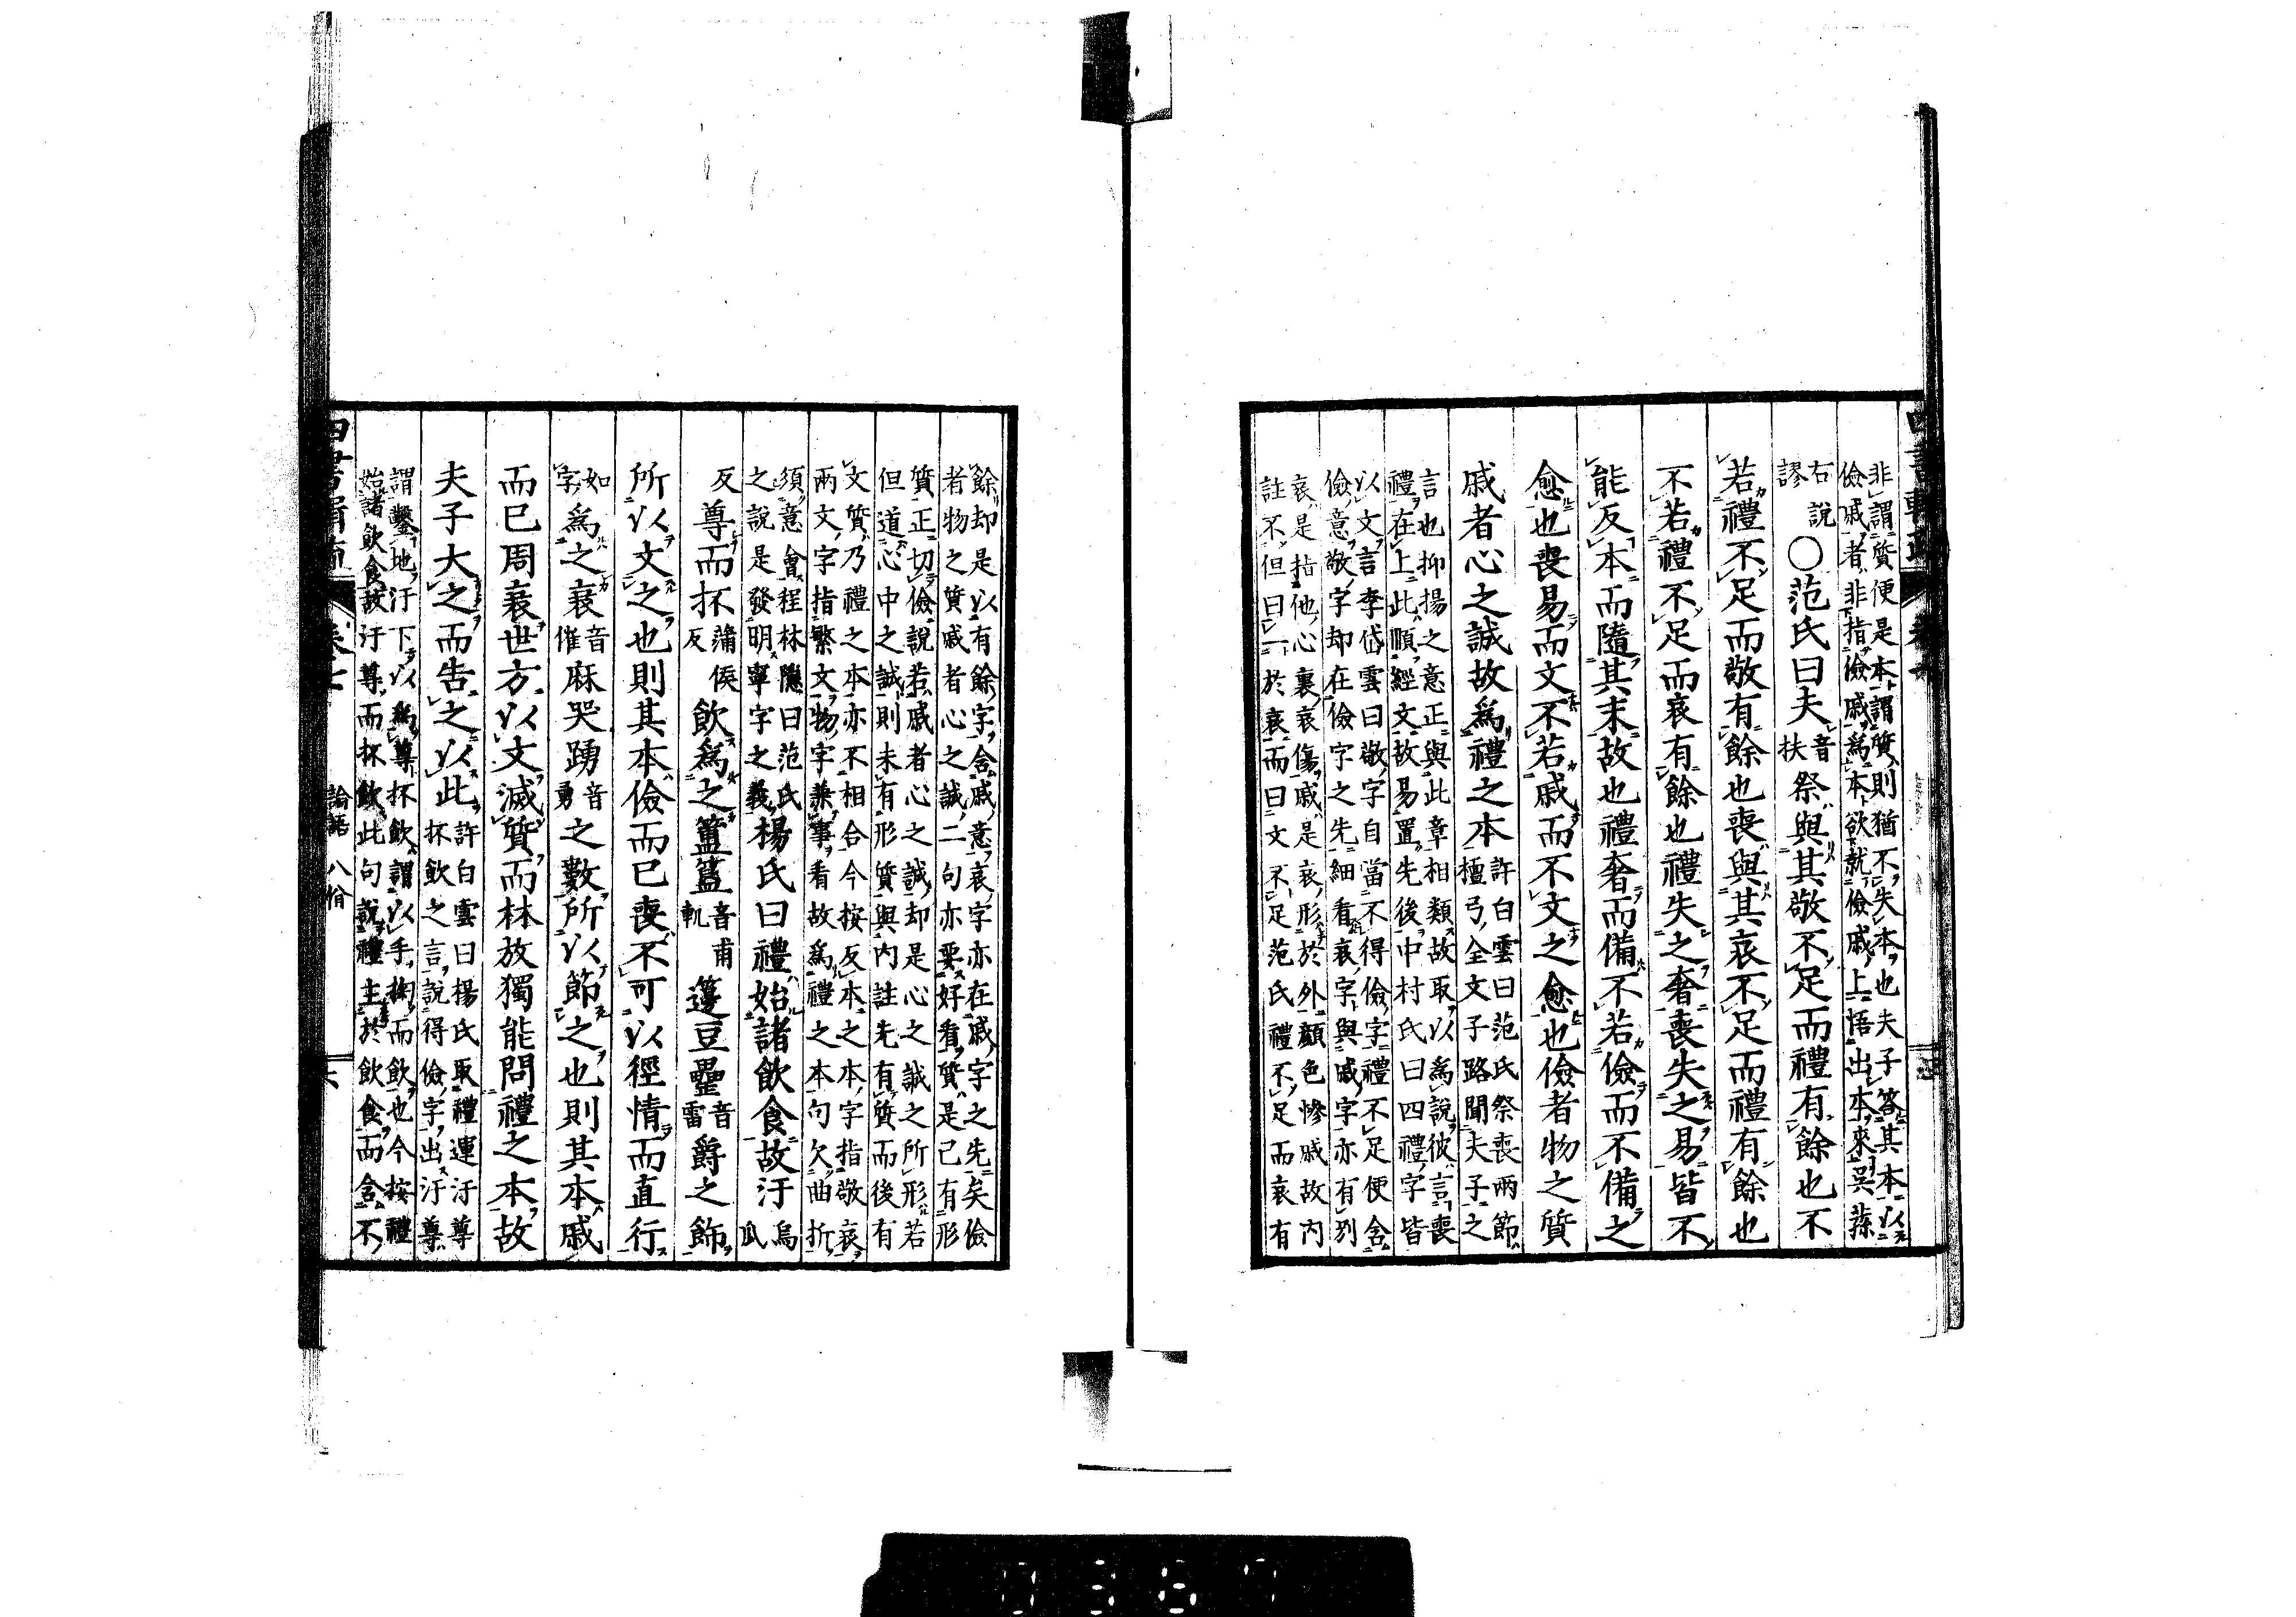 非謂質便是本謂質則猶不失本也夫子答其本以
儉戚者非指儉戚爲本欲就儉戚上悟出本來吳蓀
右說
謬
○范氏曰夫音扶祭與其敬不足而禮有餘也不
若禮不足而敬有餘也喪與其哀不足而禮有餘也
不若禮不足而哀有餘也禮失之奢喪失之易皆不
能反本而隨其末故也禮奢而備不若儉而不備之
愈也喪易而文不若戚而不文之愈也儉者物之質
戚者心之誠故爲禮之本
許白雲曰范氏祭喪兩節
檀弓全文子路聞夫子之
言也抑揚之意正與此章相類故取以爲說彼言喪
禮在上此順經文故易置先後中村氏曰四禮字皆
以文言李岱雲曰敬字自當不得儉字禮不足便含
儉意敬字却在儉字之先細看哀字與戚字亦有別
哀是指他心裏哀傷戚是哀形於外顏色慘戚故内
註不但曰一於哀而曰文不足范氏禮不足而哀有
餘却是以有餘字含戚意哀字亦在戚字之先矣儉
者物之質戚者心之誠二句亦要好看質是已有形
質正切儉說若戚者心之誠却是心之誠之所形若
但道心中之誠則未有形質與内註先有質而後有
文質乃禮之本亦不相合今按反本之本字指敬哀
兩文字指繁文物字兼事看故爲禮之本句欠曲折
須意會程林隱曰范氏
之說是發明寧字之義
楊氏曰禮始諸飲食故汙烏瓜
反尊而抔蒲侯反飲爲之簠簋音甫軌籩豆罍音雷爵之飾
所以文之也則其本儉而已喪不可以徑情而直行
如字爲之衰音催麻哭踴音勇之數所以節之也則其本戚
而已周衰世方以文滅質而林放獨能問禮之本故
夫子大之而告之以此
許白雲曰楊氏取禮運汙尊
抔飲之言說得儉字出汙尊
謂鑿地汙下以爲尊抔飲謂以手掬而飲也今按禮
始諸飲食故汙尊而抔飲此句說禮主於飲食而含不
卷七
論語 八佾
六